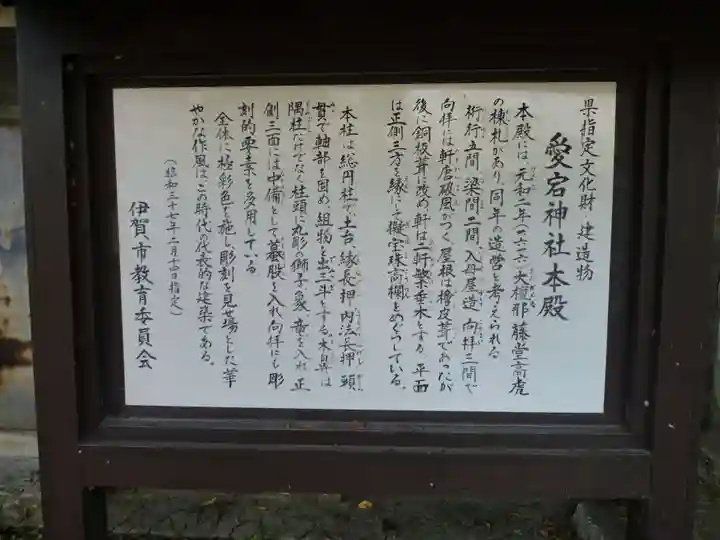 県指定文化財・建造物
愛宕神社本殿
本殿には、元和二年(一六一六)大檀那 藤堂高虎
の棟札があり、同年の造営と考えられる
桁行五間、梁間二間、入母屋造 向拝三間で
向拝には軒唐破風がつく 屋根は檜皮葺であったが
後に銅板葺に改め軒は二軒繁垂木とする 平面
は正側三方を縁にして擬宝珠高欄をめぐらしている。
本柱は総円柱で、土台、縁長押、内法長押、頭
貫で軸部を固め、組物は出三斗とする。木鼻は
隅柱だけでなく柱頭に丸彫の獅子、象、を入れ 正
側三面には中備として蟇股を入れ向拝にも彫
刻的要素を多用している
全体に極彩色で施し彫刻を見せ場とした華
やかな作風は、この時代の代表的な建築である。
(昭和三十七年二月十四日指定)
伊賀市教育委員会